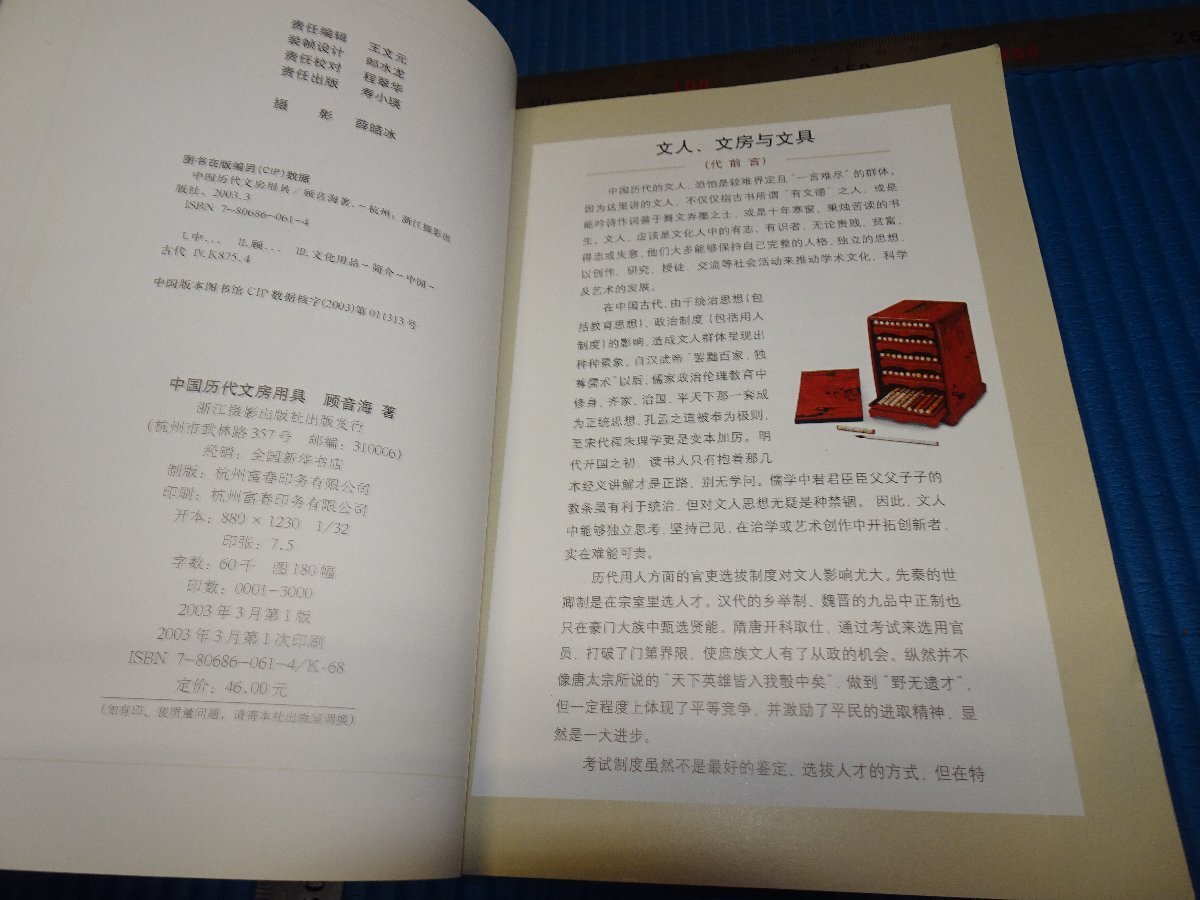 责任编辑 王文元
装帧设计 郎水龙
责任校对 程翠华
责任出版 寿小瑛
摄 影 薛皓冰
图书在版编目(CIP)数据
中国历代文房用具/顾音海著.-杭州:浙江摄影出
版社,2003.3
ISBN 7-80686-061-4
Ⅰ.中... Ⅱ.顾... Ⅲ.文化用品-简介-中国-
古代 Ⅳ.K875.4
中国版本图书馆CIP数据核字(2003)第011313号
中国历代文房用具 顾音海 著
浙江摄影出版社出版发行
(杭州市武林路357号 邮编:310006)
经销:全国新华书店
制版:杭州富春印务有限公司
印刷:杭州富春印务有限公司
开本:880×1230 1/32
印张:7.5
字数:60千 图180幅
印数:0001-3000
2003年3月第1版
2003年3月第1次印刷
ISBN 7-80686-061-4/K·68
定价:46.00元
(如有印、装质量问题,请寄本社出版室调换)
文人、文房与文具
(代前言)
中国历代的文人,恐怕是较难界定且“一言难尽”的群体。
因为这里讲的文人,不仅仅指古书所谓“有文德”之人,或是
能吟诗作词善于舞文弄墨之士,或是十年寒窗、秉烛苦读的书
生。文人,应该是文化人中的有志、有识者,无论贵贱、贫富,
得志或失意,他们大多能够保持自己完整的人格,独立的思想,
以创作、研究、授徒、交流等社会活动来推动学术文化、科学
及艺术的发展。
在中国古代,由于统治思想(包
括教育思想)、政治制度(包括用人
制度)的影响,造成文人群体呈现出
种种景象。自汉武帝“罢黜百家,独
尊儒术”以后,儒家政治伦理教育中
修身、齐家、治国、平天下那一套成
为正统思想,孔孟之道被奉为极则,
至宋代程朱理学更是变本加厉。明
代开国之初,读书人只有抱着那几
本经义讲解才是正路,别无学问。儒学中君君臣臣父父子子的
教条虽有利于统治,但对文人思想无疑是种禁锢。因此,文人
中能够独立思考,坚持己见,在治学或艺术创作中开拓创新者,
实在难能可贵。
历代用人方面的官吏选拔制度对文人影响尤大。先秦的世
卿制是在宗室里选人才。汉代的乡举制、魏晋的九品中正制也
只在豪门大族中甄选贤能。隋唐开科取仕,通过考试来选用官
员,打破了门第界限,使庶族文人有了从政的机会。纵然并不
像唐太宗所说的“天下英雄皆入我彀中矣”,做到“野无遗才”,
但一定程度上体现了平等竞争,并激励了平民的进取精神,显
然是一大进步。
考试制度虽然不是最好的鉴定、选拔人才的方式,但在特